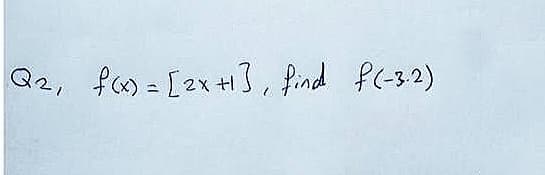 Q2, f(x) = [2x+1], find f(-3.2)